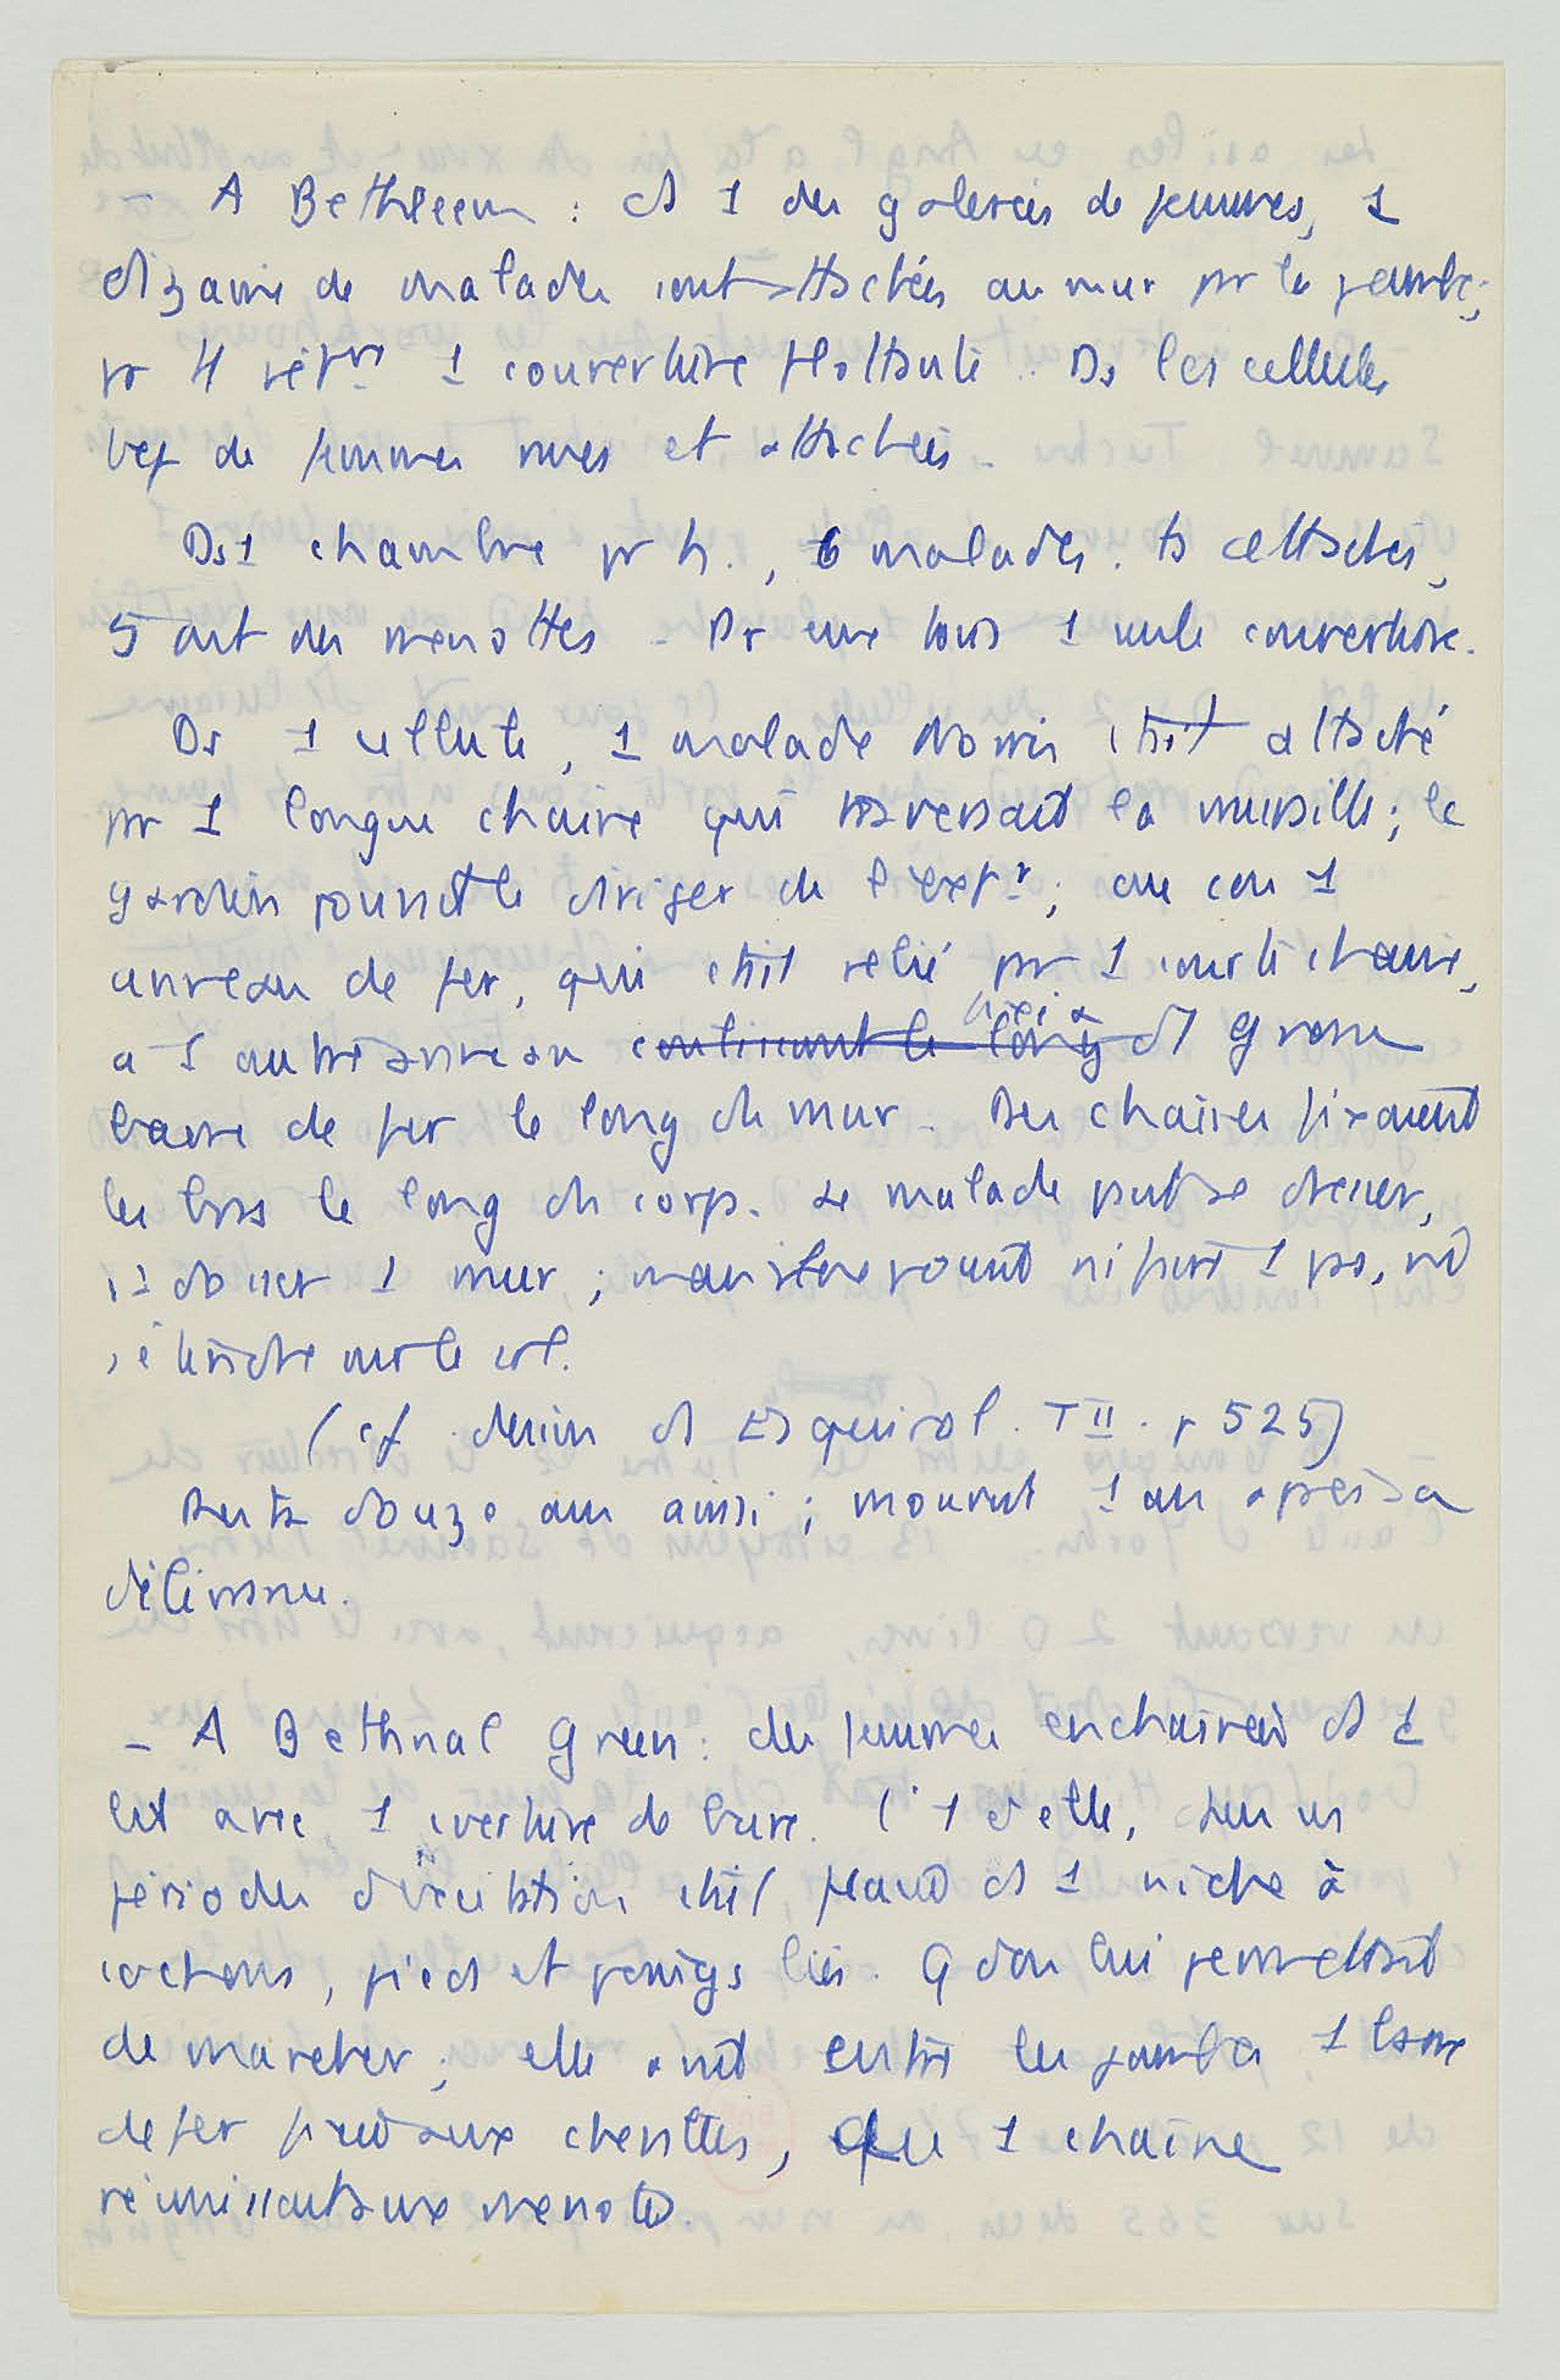 - A Bethleem : ds 1 des galeries de femmes, 1
dizaine de malades sont attachées au mur pr la jambe;
pr tt vêtnt 1 couverture flottante. Ds les cellules
bcp de femmes nues et attachées.
Ds 1 chambre pr h., 6 malades. ts attachés,
5 ont des menottes - Pr eux tous 1 seule couverture.
Ds 1 cellule, 1 malade Norris était attaché
pr 1 longue chaîne qui traversait la muraille; le
gardien pouvait le diriger de l'extr; au cou 1
anneau de fer, qui était relié pr 1 courte chaîne,
a 1 autre anneau continuant le long fixé a grosse
barre de fer le long du mur. Des chaînes fixaient
les bras le long du corps. Le malade peut se dresser,
s'adosser 1 mur; mais ne pouvait ni faire 1 pas, ni
s'étendre sur le sol.
(cf dessin ds Esquirol. T II. p 525)
Resta douze ans ainsi; mourut 1 an après sa
délivrance.
- A Bethnal Green : des femmes enchaînées ds 1
lit avec 1 couverture de bure. l'1 d'elle, ds ses
périodes d'excitation était placée ds 1 niche à
cochons, pieds et poings liés. Qd on lui permettait
de marcher; elle avait entre les jambes 1 barre
de fer fixée aux chevilles, que 1 chaîne
réunissait aux menottes.